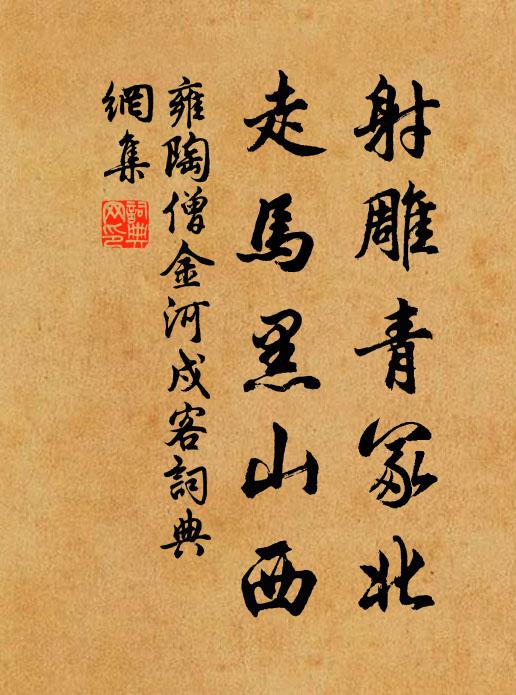 射雕青冢北
走馬黑山西
雍陶僧金河戍客詞典
網集
詞典
网印